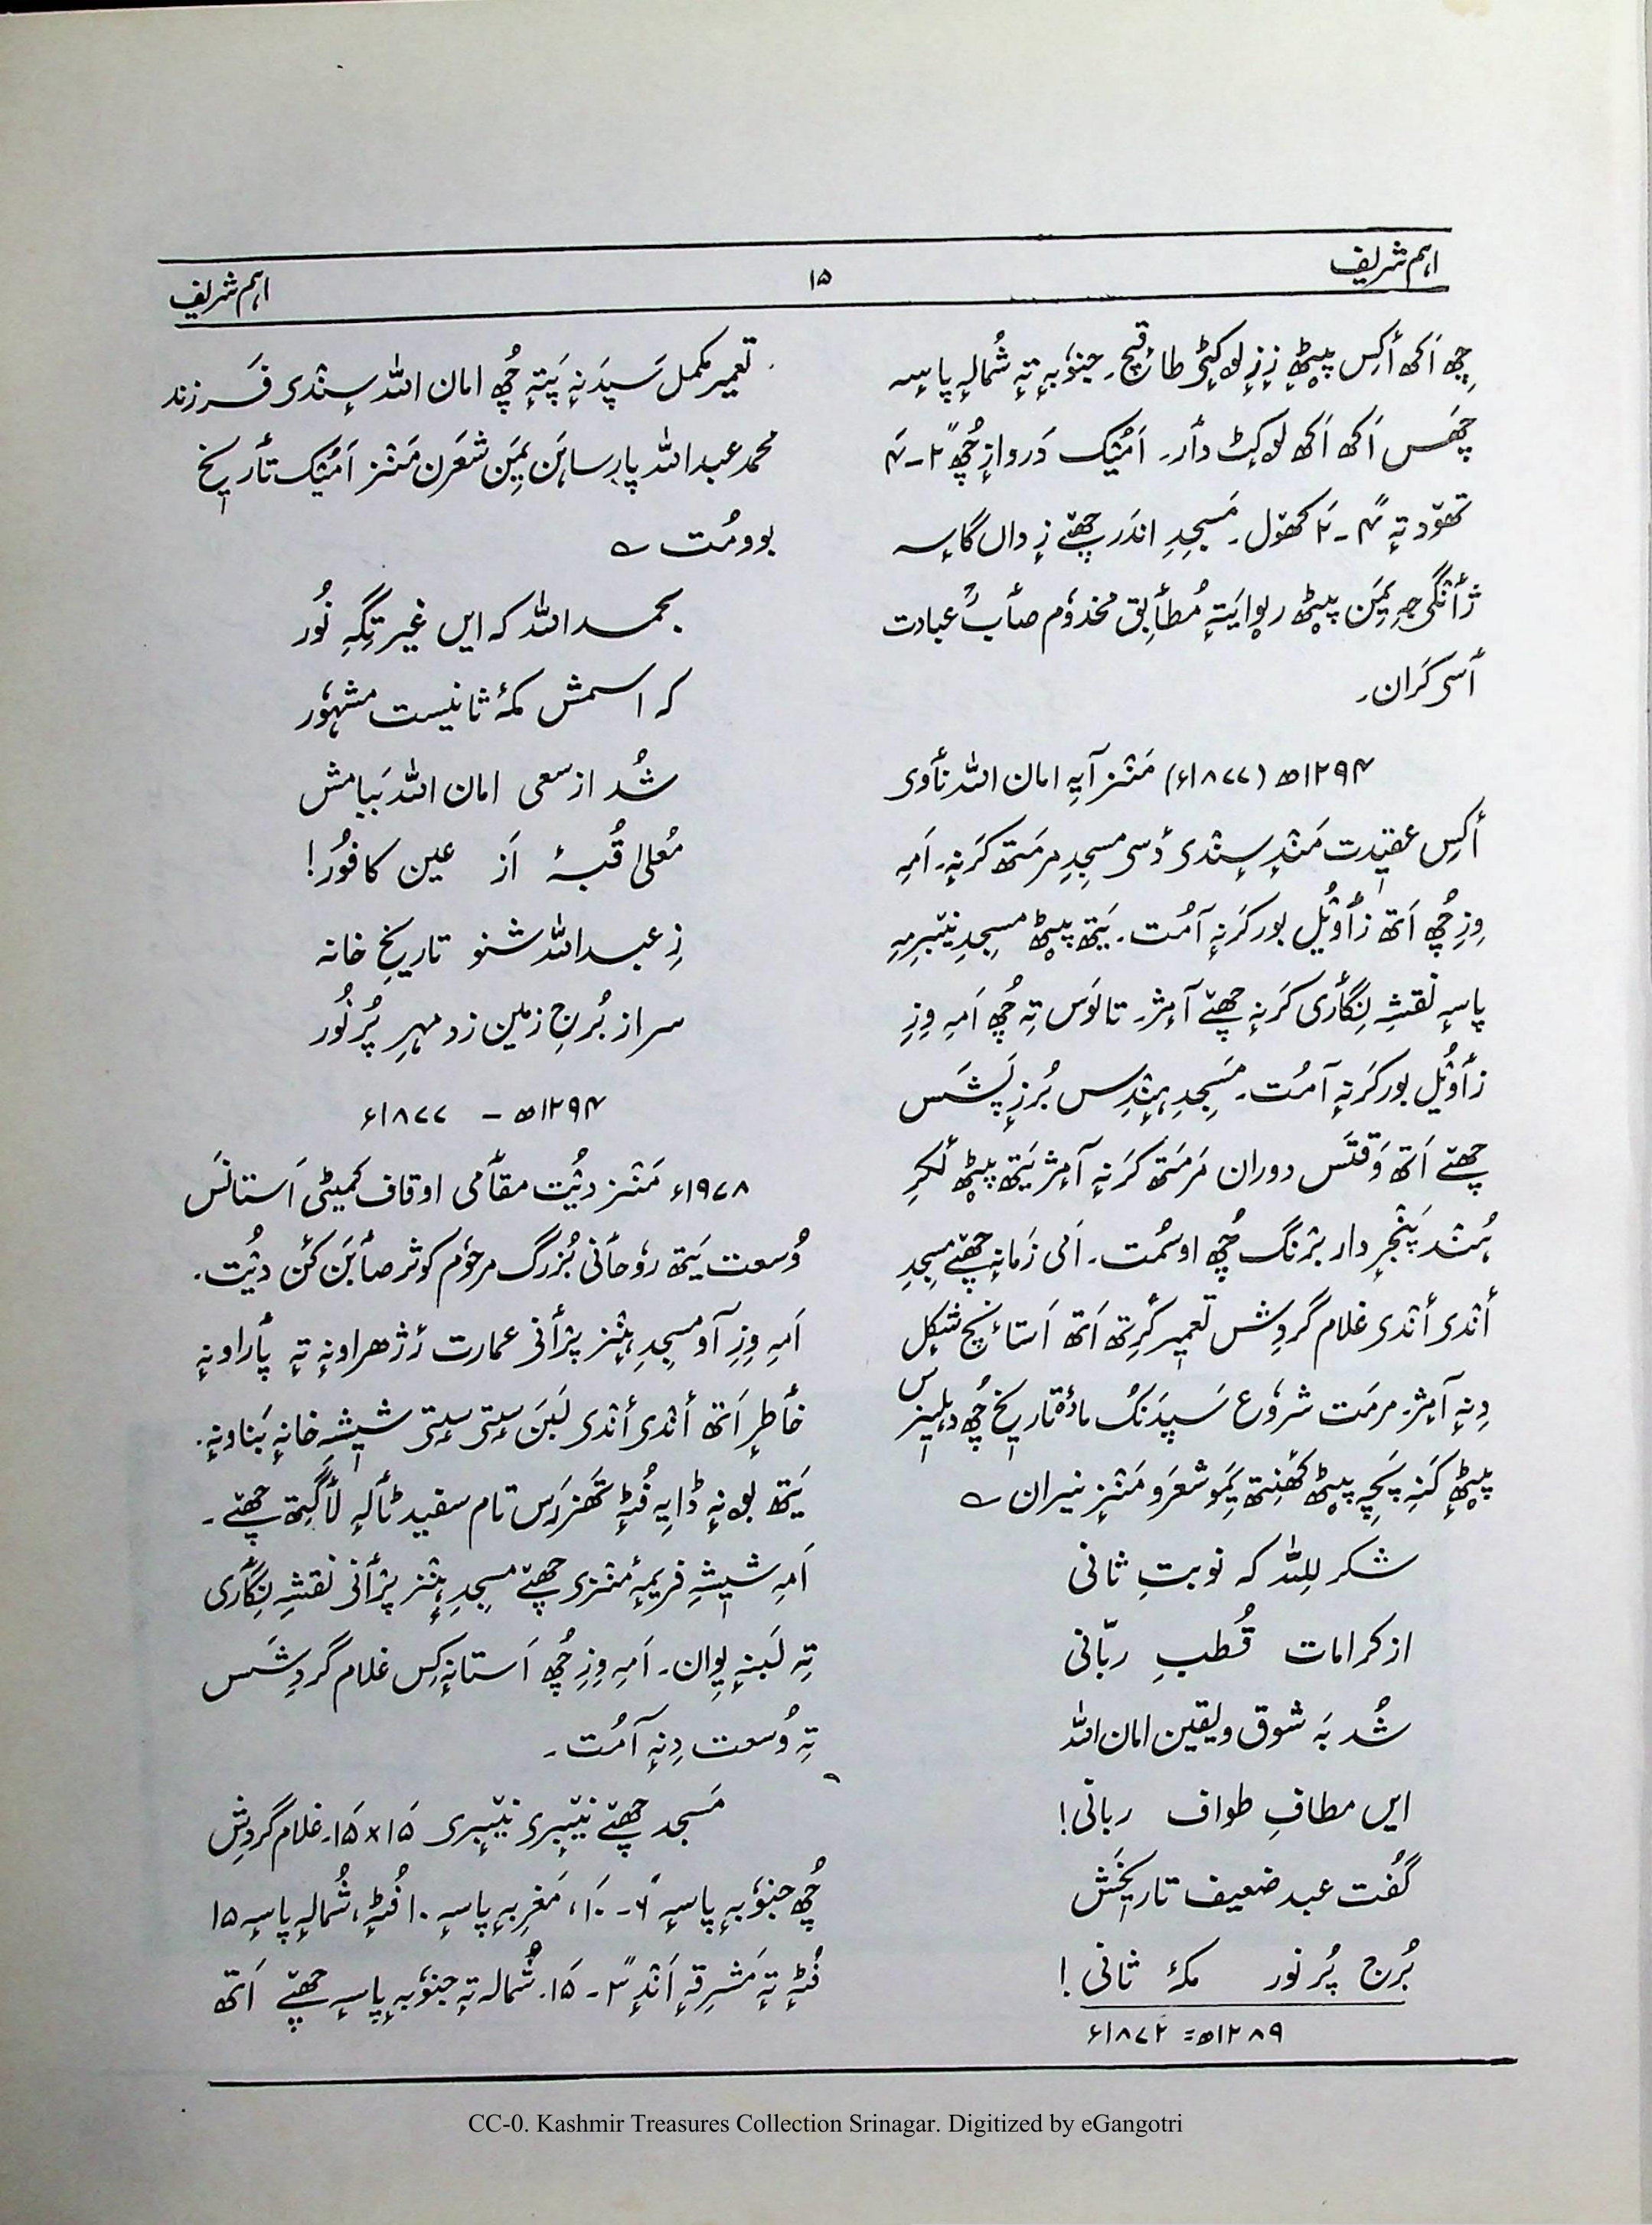 اہم شریف
۱۵
اہم شریف
چھِ اَکھ أکِس پؠٹھ زٕ زٕ لوکٕٹی طاقچ۔ جنوٗبہٕ تہٕ شُمالہٕ پاسہٕ
چھَس اَکھ اَکھ لوکُٹ دأر۔ اَمؠُک دَروازٕ چھُ ۲″-۴′
تھوٚد تہٕ ۴″-۲′ کھۄل۔ مَسجِدِ اندَر چھےٚ زٕ دال گاسہٕ
ژٲنگی جہِ یِمَن پؠٹھ رِوایَتہٕ مُطأبِق مخدوٗم صأبؒ عبادت
أسی کَران۔
۱۲۹۴ھ (۱۸۷۷ء) مَنٛز آیہِ امان اللہ نأوی
أکِس عقیدت مَندٕ سٕندی دٔسی مسجِدِ مرمتھ کَرنہٕ۔ اَمہِ
وِزِ چھُ اَتھ زأوُیُل بور کَرنہٕ آمُت۔ یَتھ پؠٹھ مسجِدِ نیٚبرِمہِ
پاسہٕ نقشہِ نِگأری کَرنہٕ چھےٚ آمٕژ۔ تالَوَس تہِ چھُ اَمہِ وِزِ
زأوُیُل بور کَرنہٕ آمُت۔ مَسجِدِ ہٕنٛدِس بُرزٕ پَشَس
چھےٚ اَتھ وَقتَس دوران مَرمَتھ کَرنہٕ آمٕژ یَتھ پؠٹھ لُکرِ
ہُنٛد پَنجرٕ دار بڑنگ چھُ اوسمُت۔ اَنی زَمانہٕ چھےٚ مسجِدِ
أنٛدی أنٛدی غلام گردِش تعمیٖر کٔرِتھ اَتھ اَستانٕچ شکٕل
دِنہٕ آمٕژ۔ مرمت شروٗع سَپدَنُک مادۂ تأریٖخ چھُ دہلیٖزس
پؠٹھ کَنہِ پَچہِ پؠٹھ کھَنِتھ یِمَو شعرَو مَنٛز نیران ؎
شکر للہ کہ نوبتِ ثانی
از کرامات قُطبِ ربّانی
شُد بہ شوق و یقین امان اللہ
ایں مطافِ طواف ربانی!
گُفت عبد ضعیف تاریخَش
بُرجِ پُر نور مکۂ ثانی!
۱۲۸۹ھ = ۱۸۷۲ء
تعمیر مکمل سَپدَنہٕ پَتہٕ چھُ امان اللہ سٕنٛدی فَرزند
محمد عبداللہ پارساہَن یِمَن شعرَن مَنٛز اَمیُک تأریٖخ
بوومُت ؎
بحمد اللہ کہ ایں غیرتگہِ نُور
کہ اسمش مکۂ ثانیست مشہُور
شُد از سعی امان اللہ بَبامش
مُعلیٰ قُبہٗ اَز عین کافُور!
زِ عبداللہ شنو تاریخِ خانہ
سر از بُرجِ زمین زد مہرِ پُر نُور
۱۲۹۴ھ - ۱۸۷۷ء
۱۹۷۸ء مَنٛز دیُت مقأمی اوقاف کمیٹی اَستانَس
وُسعت یَتھ روٗحأنی بُزرگ مرحوٗم کوثر صأبَن کَنی دیُت۔
اَمہِ وِزِ آو مسجِدِ ہٕنٛز پرٛأنی عمارت رٔژھراونہٕ تہٕ پأراونہٕ
خأطرٕ اَتھ أنٛدی أنٛدی لَبَن سٕتی سٕتی شیٖشہٕ خانہٕ بَناونہٕ۔
یَتھ بۄنہٕ ڈایہِ فُٹہٕ تھَزرَس تام سفید ٹألہٕ لأگِتھ چھےٚ۔
اَمہِ شیٖشہِ فریمہٕ مَنٛزی چھےٚ مسجِدِ ہٕنٛز پرٛأنی نقشہِ نِگأری
تہِ لَبنہٕ یِوان۔ اَمہِ وِزِ چھُ اَستانہٕ کِس غلام گردِشَس
تہِ وُسعت دِنہٕ آمُت۔
مَسجد چھےٚ نیٚبری نیٚبری ۱۵′×۱۵′۔ غلام گردِش
چھُ جنوٗبہٕ پاسہٕ ۶″-۱۰′، مَغرِبہٕ پاسہٕ ۱۰ فُٹہٕ، شُمالہٕ پاسہٕ ۱۵
فُٹہٕ تہٕ مَشرِقہٕ اَنٛدٕ ۳″-۱۵′۔ شُمالہٕ تہٕ جنوٗبہٕ پاسہٕ چھےٚ اَتھ
CC-0. Kashmir Treasures Collection Srinagar. Digitized by eGangotri